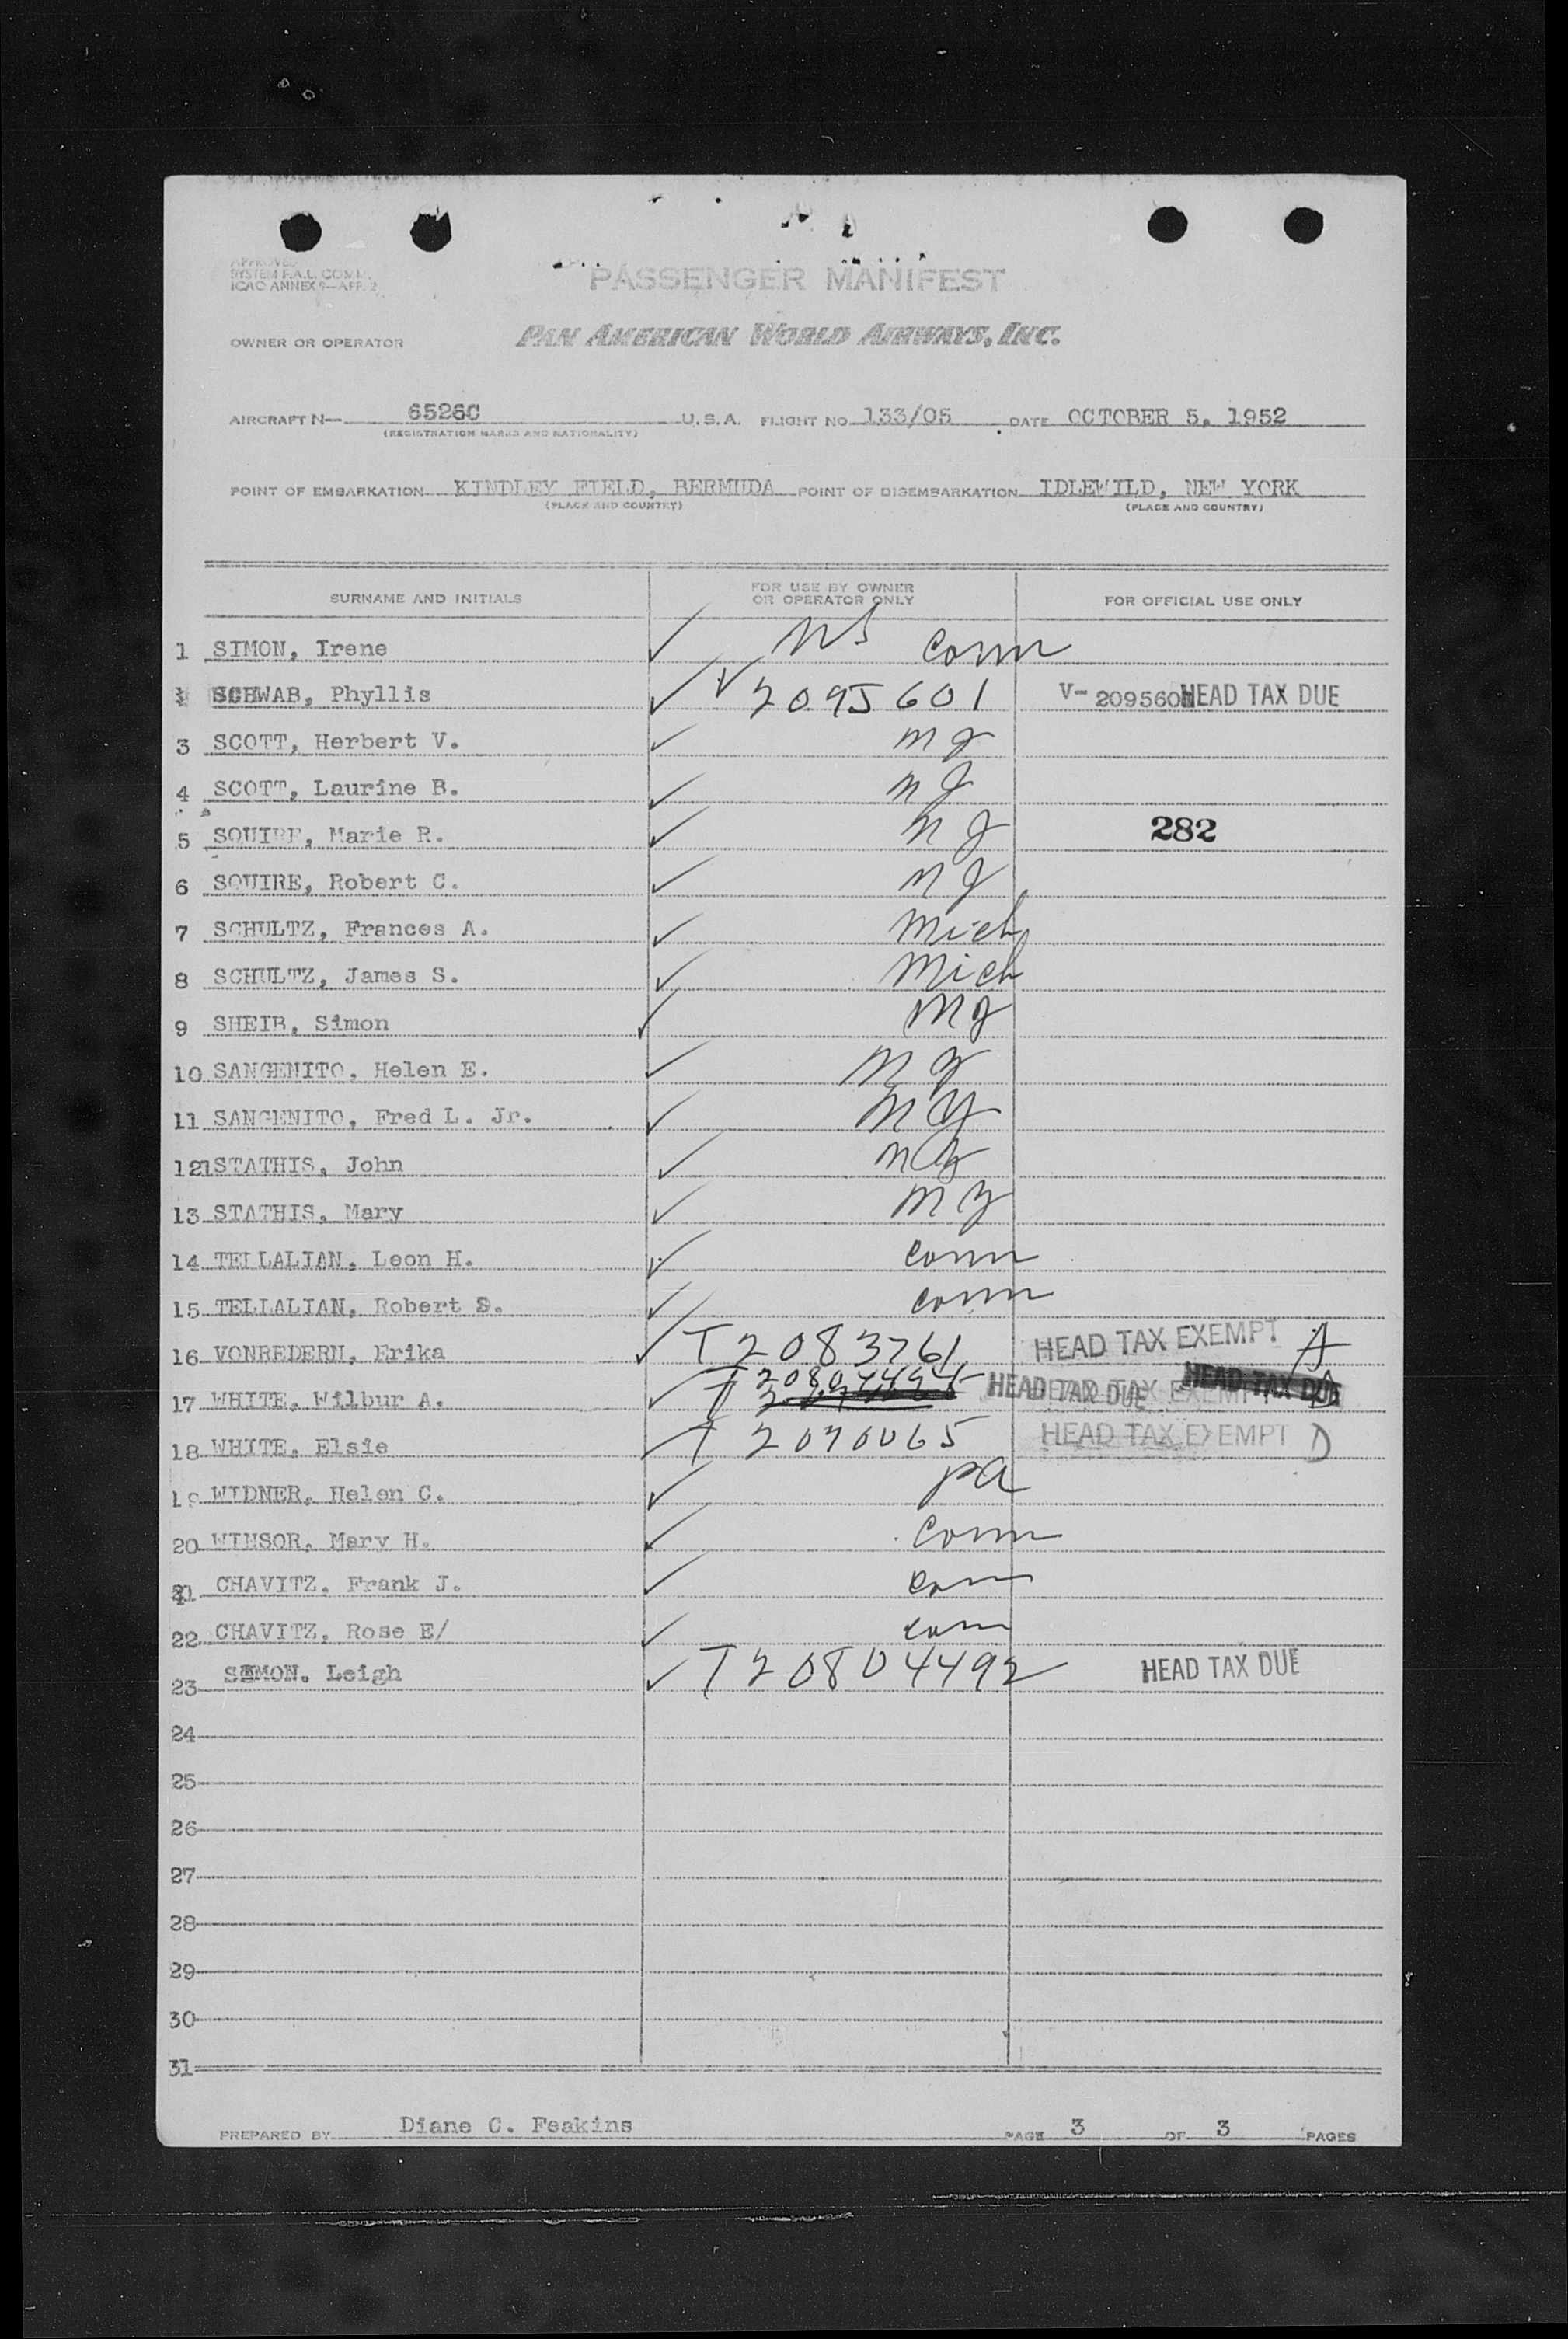 APPROVED
SYSTEM F.A.L. COMM.
ICAO ANNEX 9—APP. 2
PASSENGER MANIFEST
OWNER OR OPERATOR PAN AMERICAN WORLD AIRWAYS, INC.
AIRCRAFT N— 6526C U.S.A. FLIGHT NO. 133/05 DATE OCTOBER 5, 1952
(REGISTRATION MARKS AND NATIONALITY)
POINT OF EMBARKATION KINDLEY FIELD, BERMUDA POINT OF DISEMBARKATION IDLEWILD, NEW YORK
(PLACE AND COUNTRY) (PLACE AND COUNTRY)
SURNAME AND INITIALS FOR USE BY OWNER OR OPERATOR ONLY FOR OFFICIAL USE ONLY
1 SIMON, Irene ✓ Conn
SCHWAB, Phyllis ✓ V 2095601 V- 209560 HEAD TAX DUE
3 SCOTT, Herbert V. ✓ NJ
4 SCOTT, Laurine B. ✓ NJ
5 SQUIRE, Marie R. ✓ NJ 282
6 SQUIRE, Robert C. ✓ NJ
7 SCHULTZ, Frances A. ✓ Mich
8 SCHULTZ, James S. ✓ Mich
9 SHEIB, Simon ✓ NY
10 SANGENITO, Helen E. ✓ NY
11 SANGENITO, Fred L. Jr. ✓ NY
12 STATHIS, John ✓ NY
13 STATHIS, Mary ✓ NY
14 TELLALIAN, Leon H. ✓ Conn
15 TELLALIAN, Robert S. ✓ Conn
16 VONREDERN, Erika ✓ T2083761 HEAD TAX EXEMPT A
17 WHITE, Wilbur A. ✓ T HEAD TAX DUE HEAD TAX EXEMPT HEAD TAX DUE
18 WHITE, Elsie ✓ T 2070065 HEAD TAX EXEMPT D
19 WIDNER, Helen C. ✓ Pa
20 WINSOR, Mary H. ✓ Conn
21 CHAVITZ, Frank J. ✓ Conn
22 CHAVITZ, Rose E/ ✓ Conn
23 SIMON, Leigh ✓ T20804492 HEAD TAX DUE
24
25
26
27
28
29
30
31
PREPARED BY Diane C. Feakins PAGE 3 OF 3 PAGES